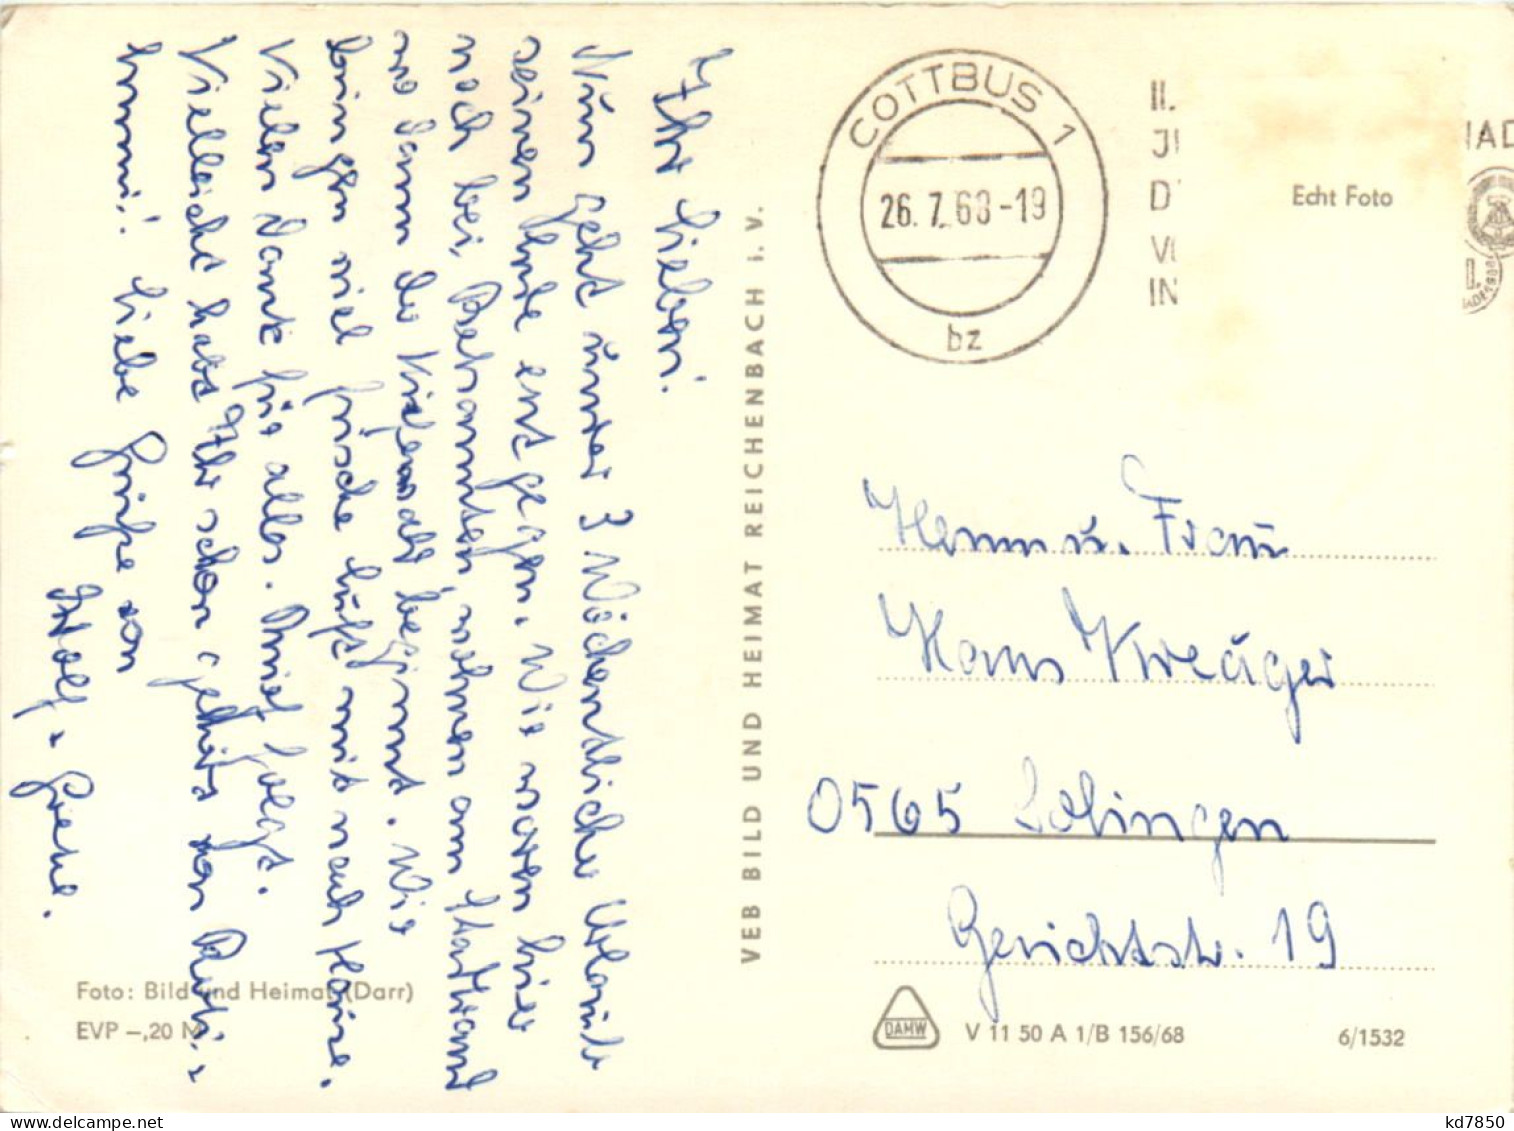 Ihr Lieben!
Nun geht unser 3 wöchentlicher Urlaub
seinem Ende entgegen. Wir waren hier
noch bei Bekannten, wohnen am Stadtrand
wo dann der Kiefernwald beginnt. Wir
bringen viel frische Luft mit nach Hause.
Vielen Dank für alles. Brief folgt.
Vielleicht habt Ihr schon gehört von
! Liebe Grüße von
Wolf + Grete.
Foto: Bild und Heimat (Darr)
EVP –,20 M
VEB BILD UND HEIMAT REICHENBACH i. V.
COTTBUS 1
26.7.68-19
bz
II.
IN
IAD
Echt Foto
Herrn u. Frau
Hans Kreäger
0565 Solingen
Gerichtstr. 19
DAMW
V 11 50 A 1/B 156/68
6/1532
kd7850